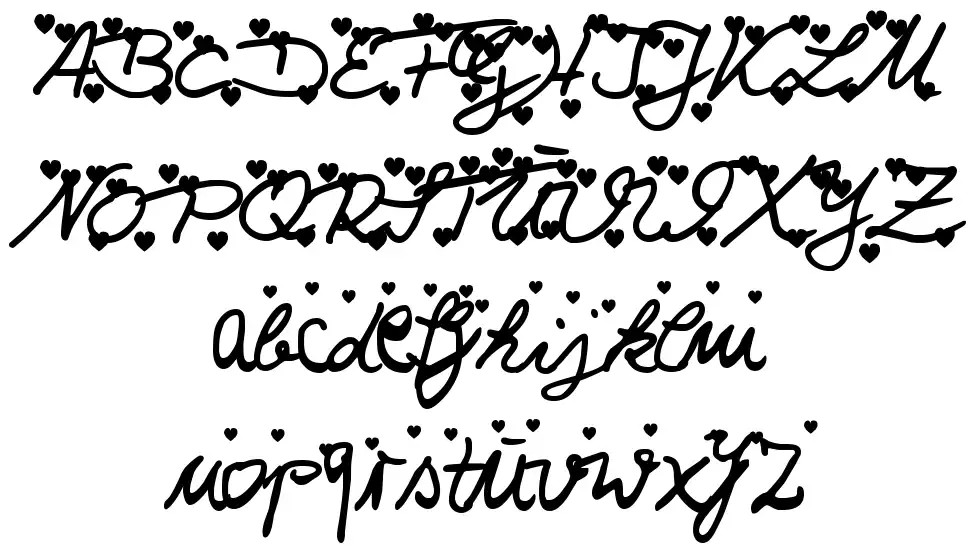 ABCDEFGHIJKLM
NOPQRSTŪVWXYZ
abcdefghijklm
nopqrstūvwxyz